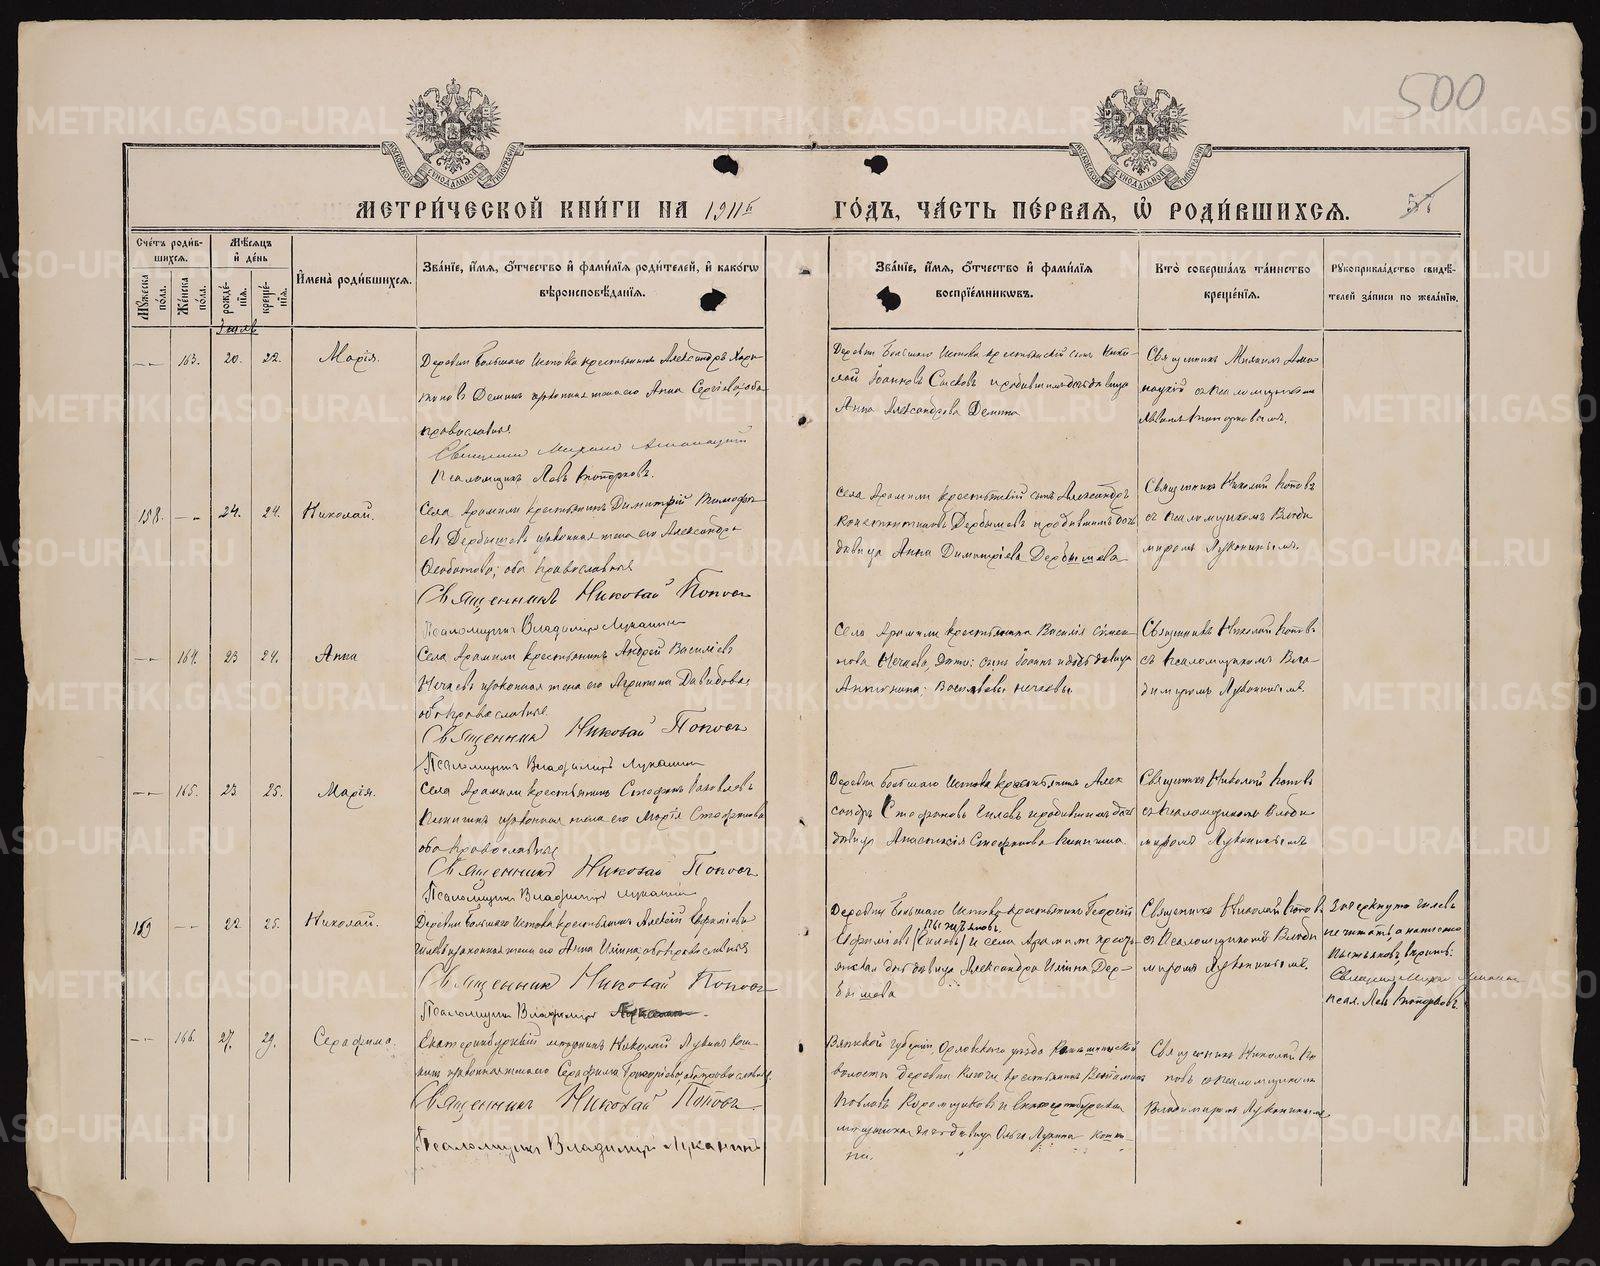 500
МОСКОВСКОЙ СѴНОДАЛЬНОЙ ТИПОГРАФІИ
МОСКОВСКОЙ СѴНОДАЛЬНОЙ ТИПОГРАФІИ
МЕТРИ́ЧЕСКОЙ КНИ́ГИ НА 1911й ГО́ДЪ, ЧА́СТЬ ПЕ́РВАЯ, Ѽ РОДИ́ВШИХСЯ.
Сче́тъ роди́в-
шихся.
Мѣ́сяцъ
и҆ де́нь
Мꙋ́жеска по́ла.
Же́нска по́ла.
рожде́-
нїя.
креще́-
нїя.
И҆мена̀ роди́вшихся.
Зва́нїе, и҆́мя, ѻ҆́тчество и҆ фами́лїя роди́телей, и҆ како́гѡ
вѣроисповѣ́данїя.
Зва́нїе, и҆́мя, ѻ҆́тчество и҆ фами́лїя
воспрїе́мникѡвъ.
Кто̀ соверша́лъ та́инство
креще́нїя.
Рꙋкоприкла́дство свидѣ́-
телей за́писи по жела́нїю.
Іюль
163. 20. 22. Марія.
Деревни Большаго Истока крестьянинъ Александръ Хари-
тоновъ Деминъ и законная жена его Анна Сергіева, оба
православные
Священникъ Михаилъ
Псаломщикъ Левъ
Деревни Большаго Истока крестьянскій сынъ Нико-
лай Іоанновъ Сысковъ и родившимъ дочь дѣвица
Анна Александрова Демина
Священникъ Михаилъ
съ псаломщикомъ
Львомъ
158. 24. 24. Николай.
Села Арамили крестьянинъ Димитрій Тимофе-
евъ Дербышевъ и законная жена его Александра
оба православные
Священникъ Николай Поповъ
Псаломщикъ Владиміръ Луканинъ
Села Арамили крестьянскій сынъ Александръ
Константиновъ Дербышевъ и родившимъ дочь
дѣвица Анна Димитріева Дербышева
Священникъ Николай Поповъ
съ псаломщикомъ Влади-
міромъ Луканинымъ.
164. 23 24. Анна
Села Арамили крестьянинъ Андрей Василіевъ
Нечаевъ и законная жена его Агрипина Давидова
оба православные.
Священникъ Николай Поповъ
Псаломщикъ Владиміръ Луканинъ
Села Арамили крестьянина Василія Симео-
нова Нечаева, дѣти: сынъ Іоаннъ и дочь дѣвица
Антонина Васильевы Нечаевы.
Священникъ Николай Поповъ
съ псаломщикомъ Вла-
диміромъ Луканинымъ.
165. 23. 25. Марія.
Села Арамили крестьянинъ Стефанъ Іаковлевъ
и законная жена его Марія Стефанова
оба православные
Священникъ Николай Поповъ
Псаломщикъ Владиміръ Луканинъ
Деревни Большаго Истока крестьянинъ Алек-
сандръ Стефановъ Гилевъ и родившимъ дочь
дѣвица Анастасія Стефанова
Священникъ Николай Поповъ
съ псаломщикомъ Влади-
міромъ Луканинымъ
159 22. 25. Николай.
Деревни Большаго Истока крестьянинъ Алексій Ефиміевъ
Гилевъ и законная жена его Анна Ильина, оба православные
Священникъ Николай Поповъ
Псаломщикъ Владиміръ Луканинъ.
Деревни Большаго Истока крестьянинъ Георгій
Пыжьяновъ
Ефиміевъ (Гилевъ) и села Арамили кресть-
янская дочь дѣвица Александра Ильина Дер-
бышева
Священникъ Николай Поповъ
съ псаломщикомъ Влади-
міромъ Луканинымъ.
Зачеркнуто Гилевъ
не читать, а написано
Пыжьяновъ вѣрить.
Священникъ Михаилъ
псал. Левъ
166. 27. 29. Серафима.
Екатеринбургскій мѣщанинъ Николай Лукинъ
и законная жена его Серафима Григоріева, оба православные.
Священникъ Николай Поповъ
Псаломщикъ Владиміръ Луканинъ
Вятской губерніи, Орловскаго уѣзда
волости деревни крестьянинъ Веніаминъ
Павловъ и Екатеринбургская
мѣщанская дочь дѣвица Ольга Лукина
Священникъ Николай По-
повъ съ псаломщикомъ
Владиміромъ Луканинымъ.
METRIKI.GASO-URAL.RU